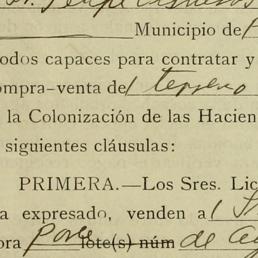 Municipio de
odos capaces para contratar y
ompra-venta de 1 terreno
la Colonización de las Hacien
siguientes cláusulas:
PRIMERA.—Los Sres. Lic
a expresado, venden a
ora lote(s) núm de